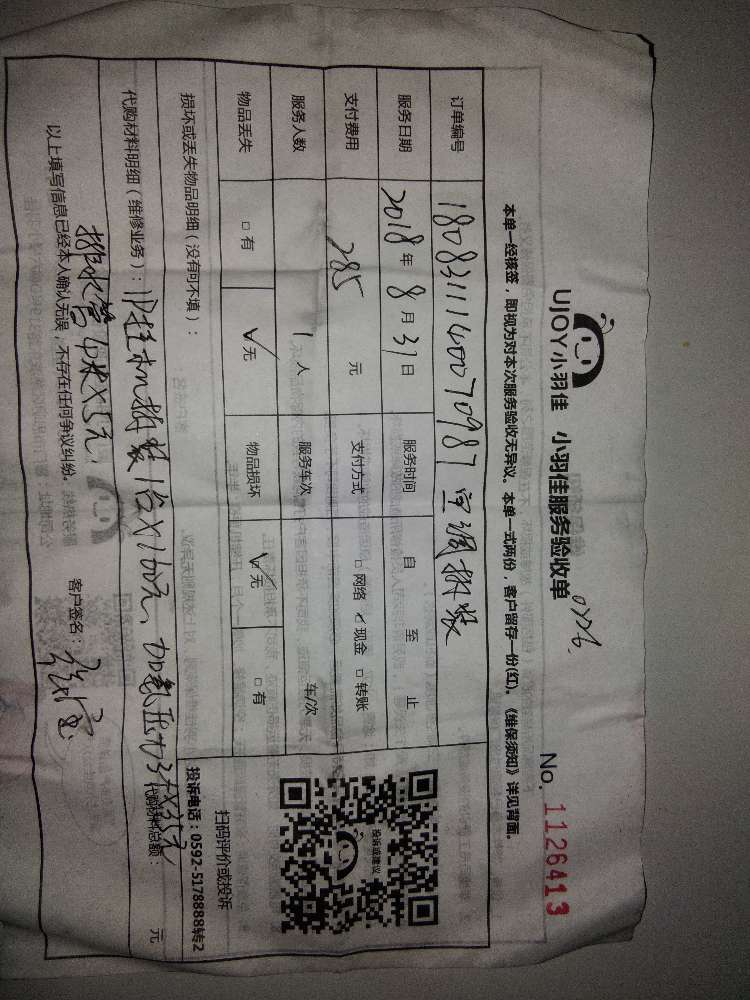 UJOY小羽佳 小羽佳服务验收单
No. 1126413
本单一经核签，即视为对本次服务验收无异议。本单一式两份，客户留存一份(红)。《维保须知》详见背面。
订单编号 1808311140070987 空调拆装
服务日期 2018年8月31日 服务时间 自 至 止
支付费用 285 元 支付方式 □网络 ✓现金 □转账
服务人数 1 人 服务车次 车/次
物品丢失 □有 ☑无 物品损坏 ☑无 □有
投诉或建议
扫码评价或投诉
投诉电话：0592-5178888转2
损坏或丢失物品明细（没有可不填）：
代购材料明细（维修业务）：1P挂机拆装1台X160元，加氟压力3个X35元
代购材料总额： 元
排水管4米X5元.
以上填写信息已经本人确认无误，不存在任何争议纠纷。 客户签名：